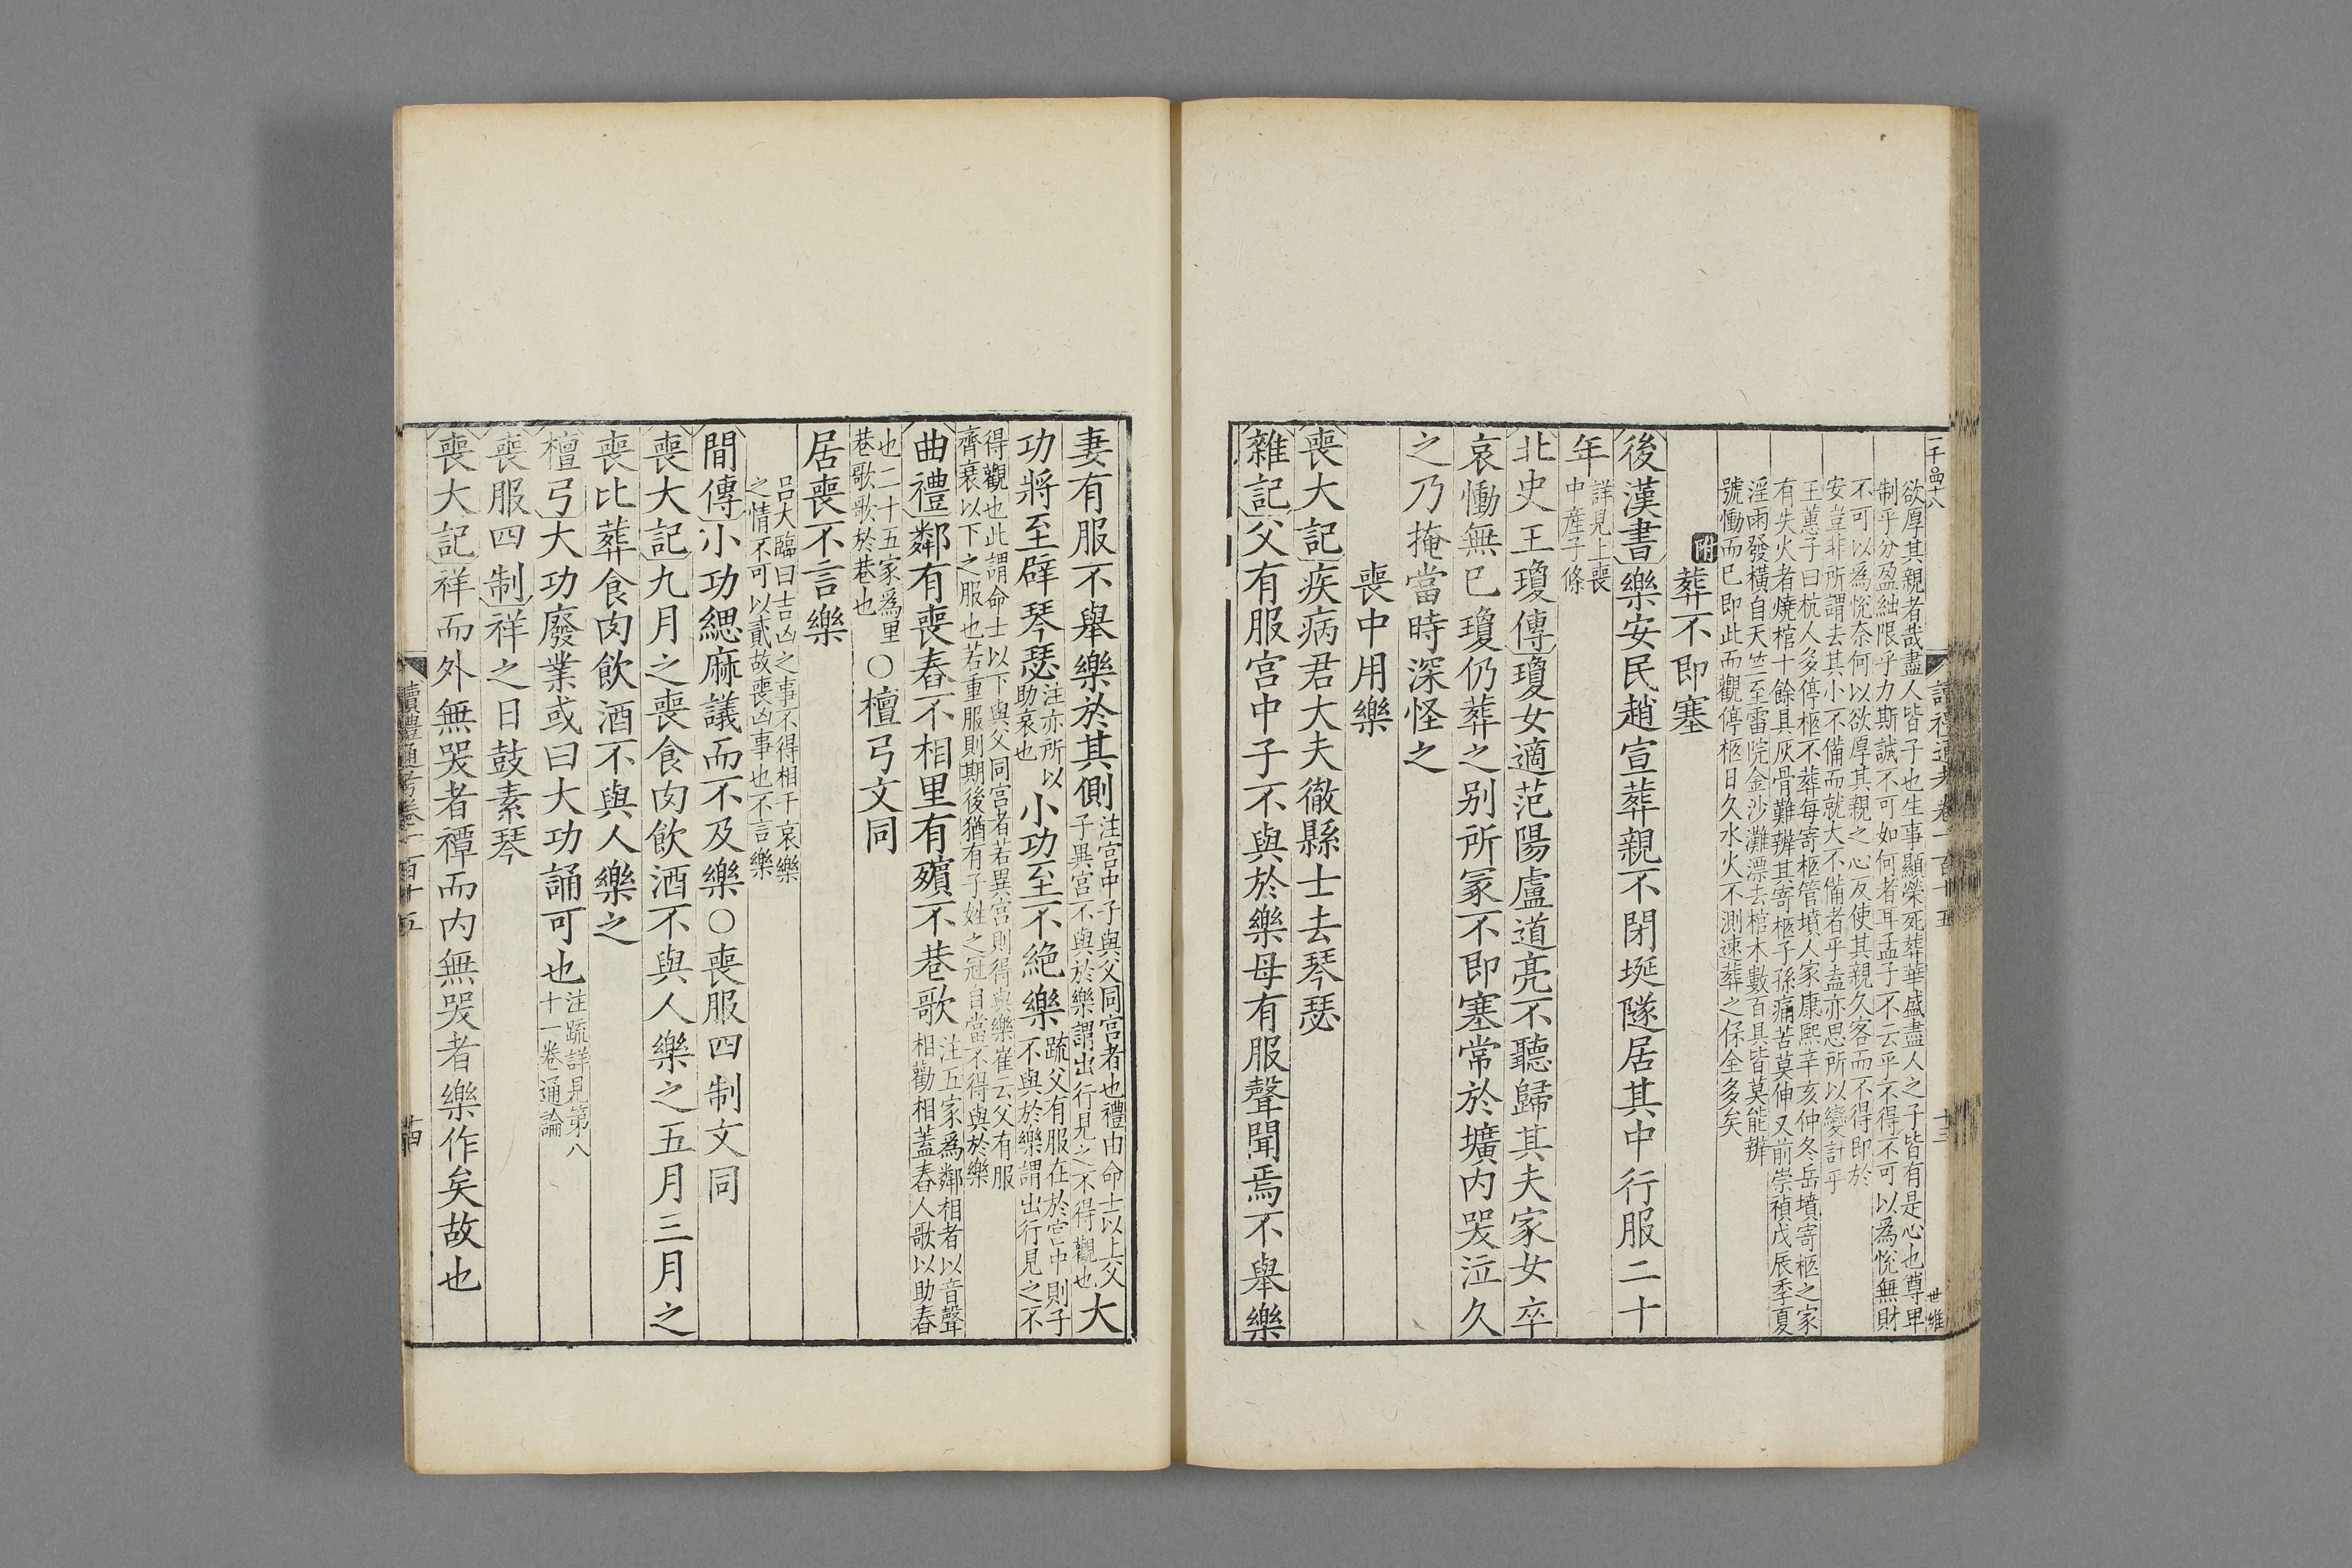 二千四百十八
讀禮通考卷一百十五
十三
世維
欲厚其親者哉盡人皆子也生事顯榮死葬華盛盡人之子皆有是心也尊卑
制乎分盈絀限乎力斯誠不可如何者耳孟子不云乎不得不可以為悅無財
不可以為悅奈何以欲厚其親之心反使其親久客而不得即於
安豈非所謂去其小不備而就大不備者乎盍亦思所以變計乎
王蕙子曰杭人多停柩不葬每寄柩管墳人家康熙辛亥仲冬岳墳寄柩之家
有失火者燒棺十餘具灰骨難辨其寄柩子孫痛苦莫伸又前崇禎戊辰季夏
淫雨發橫自天竺至雷院金沙灘漂去棺木數百具皆莫能辨
號慟而已即此而觀停柩日久水火不測速葬之保全多矣
附葬不即塞
後漢書樂安民趙宣葬親不閉埏隧居其中行服二十
年詳見上喪
中產子條
北史王瓊傳瓊女適范陽盧道亮不聽歸其夫家女卒
哀慟無已瓊仍葬之别所冢不即塞常於壙内哭泣久
之乃掩當時深怪之
喪中用樂
喪大記疾病君大夫徹縣士去琴瑟
雜記父有服宫中子不與於樂母有服聲聞焉不舉樂
妻有服不舉樂於其側注宫中子與父同宫者也禮由命士以上父
子異宫不與於樂謂出行見之不得觀也大
功將至辟琴瑟注亦所以
助哀也小功至不絶樂疏父有服在於宫中則子
不與於樂謂出行見之不
得觀也此謂命士以下與父同宫者若異宫則得與樂崔云父有服
齊衰以下之服也若重服則期後猶有子姓之冠自當不得與於樂
曲禮鄰有喪舂不相里有殯不巷歌注五家爲鄰相者以音聲
相勸相蓋舂人歌以助舂
也二十五家爲里
巷歌歌於巷也○檀弓文同
居喪不言樂
吕大臨曰吉凶之事不得相干哀樂
之情不可以貳故喪凶事也不言樂
間傳小功緦麻議而不及樂○喪服四制文同
喪大記九月之喪食肉飲酒不與人樂之五月三月之
喪比葬食肉飲酒不與人樂之
檀弓大功廢業或曰大功誦可也注疏詳見第八
十一卷通論
喪服四制祥之日鼓素琴
喪大記祥而外無哭者禫而内無哭者樂作矣故也
讀禮通考卷一百十五
十四